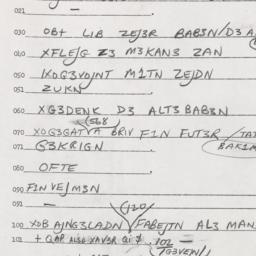 021 —
030 OB+ LIB ZEJ3R BAB3N/D3 A
040 XFLEJG Z3 M3KAN3 ZAN
050 1XOG3VOJNT M1TN ZEJDN
051 ZUKN
060 XG3DENK D3 ALT3 BAB3N
(568)
070 XOG3GATVA BRIV F1N FUT3R /TAT
071 G3KRIGN (BAK1M
080 OFTE
090 F1N VEJM3N
091 — (120)
100 XOB AJNG3LADN FABEJTN AL3 MAN
101 + QAP ALSO XAV3R QI 7. 102 —
(7G3VEJN/)